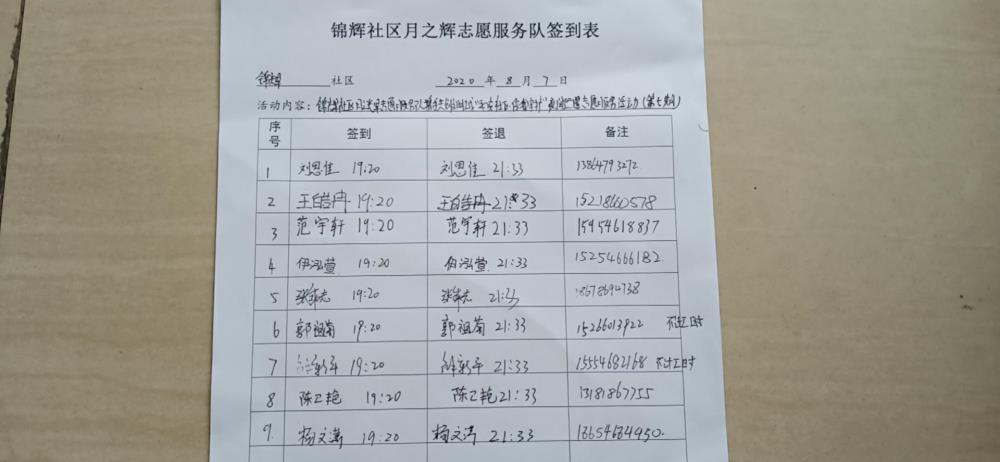 锦辉社区月之辉志愿服务队签到表
锦辉 社区 2020 年 8 月 7 日
活动内容: 锦辉社区 志愿服务 活动(第七期)
序号 签到 签退 备注
1 刘思佳 19:20 刘思佳 21:33 13864793272
2 王皓冉 19:20 王皓冉 21:33 15218660578
3 范宇轩 19:20 范宇轩 21:33 15954618837
4 伊泓萱 19:20 伊泓萱 21:33 15254666182
5 19:20 21:33 18678694738
6 郭祖菊 19:20 郭祖菊 21:33 15266013922 不计工时
7 19:20 21:33 15554682168 不计工时
8 陈卫艳 19:20 陈卫艳 21:33 13181867755
9. 杨文涛 19:20 杨文涛 21:33 13654684930.